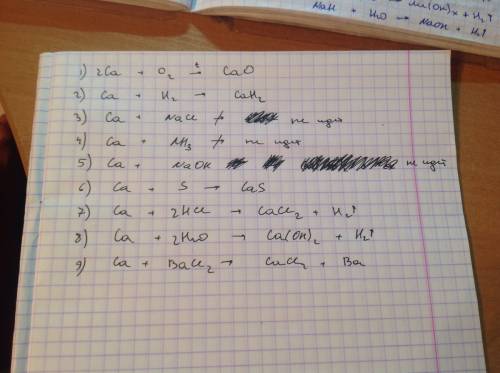 Na(OH)x + H₂↑
NaH + H₂O → NaOH + H₂↑
1) 2Ca + O₂ →ᵗ CaO
2) Ca + H₂ → CaH₂
3) Ca + NaCl ↛ не идёт
4) Ca + NH₃ ↛ не идёт
5) Ca + NaOH не идёт
6) Ca + S → CaS
7) Ca + 2HCl → CaCl₂ + H₂↑
8) Ca + 2H₂O → Ca(OH)₂ + H₂↑
9) Ca + BaCl₂ → CaCl₂ + Ba